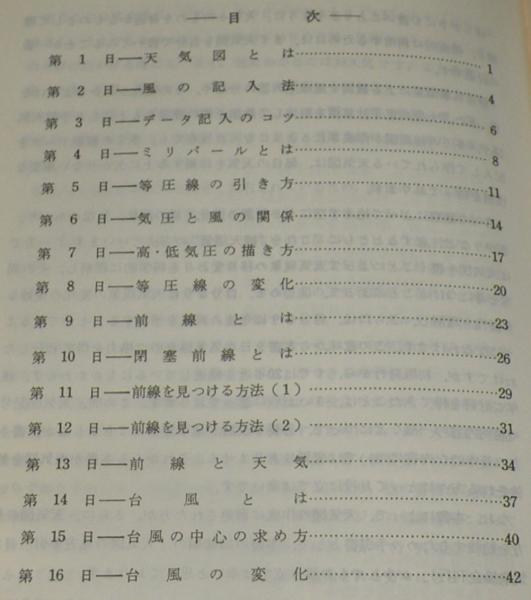 ―― 目 次 ――
第 1 日――天気図とは……………………………1
第 2 日――風の記入法……………………………4
第 3 日――データ記入のコツ……………………………6
第 4 日――ミリバールとは……………………………8
第 5 日――等圧線の引き方……………………………11
第 6 日――気圧と風の関係……………………………14
第 7 日――高・低気圧の描き方……………………………17
第 8 日――等圧線の変化……………………………20
第 9 日――前線とは……………………………23
第 10 日――閉塞前線とは……………………………26
第 11 日――前線を見つける方法(1)……………………………29
第 12 日――前線を見つける方法(2)……………………………31
第 13 日――前線と天気……………………………34
第 14 日――台風とは……………………………37
第 15 日――台風の中心の求め方……………………………40
第 16 日――台風の変化……………………………42